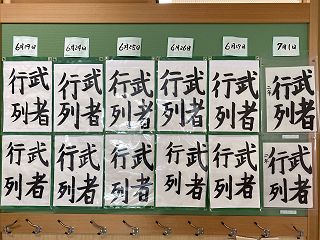 6月19日
6月24日
6月25日
6月26日
6月17日
7月1日
武者
行列
武者
行列
武者
行列
武者
行列
武者
行列
武者
行列
武者
行列
武者
行列
武者
行列
武者
行列
武者
行列
武者
行列